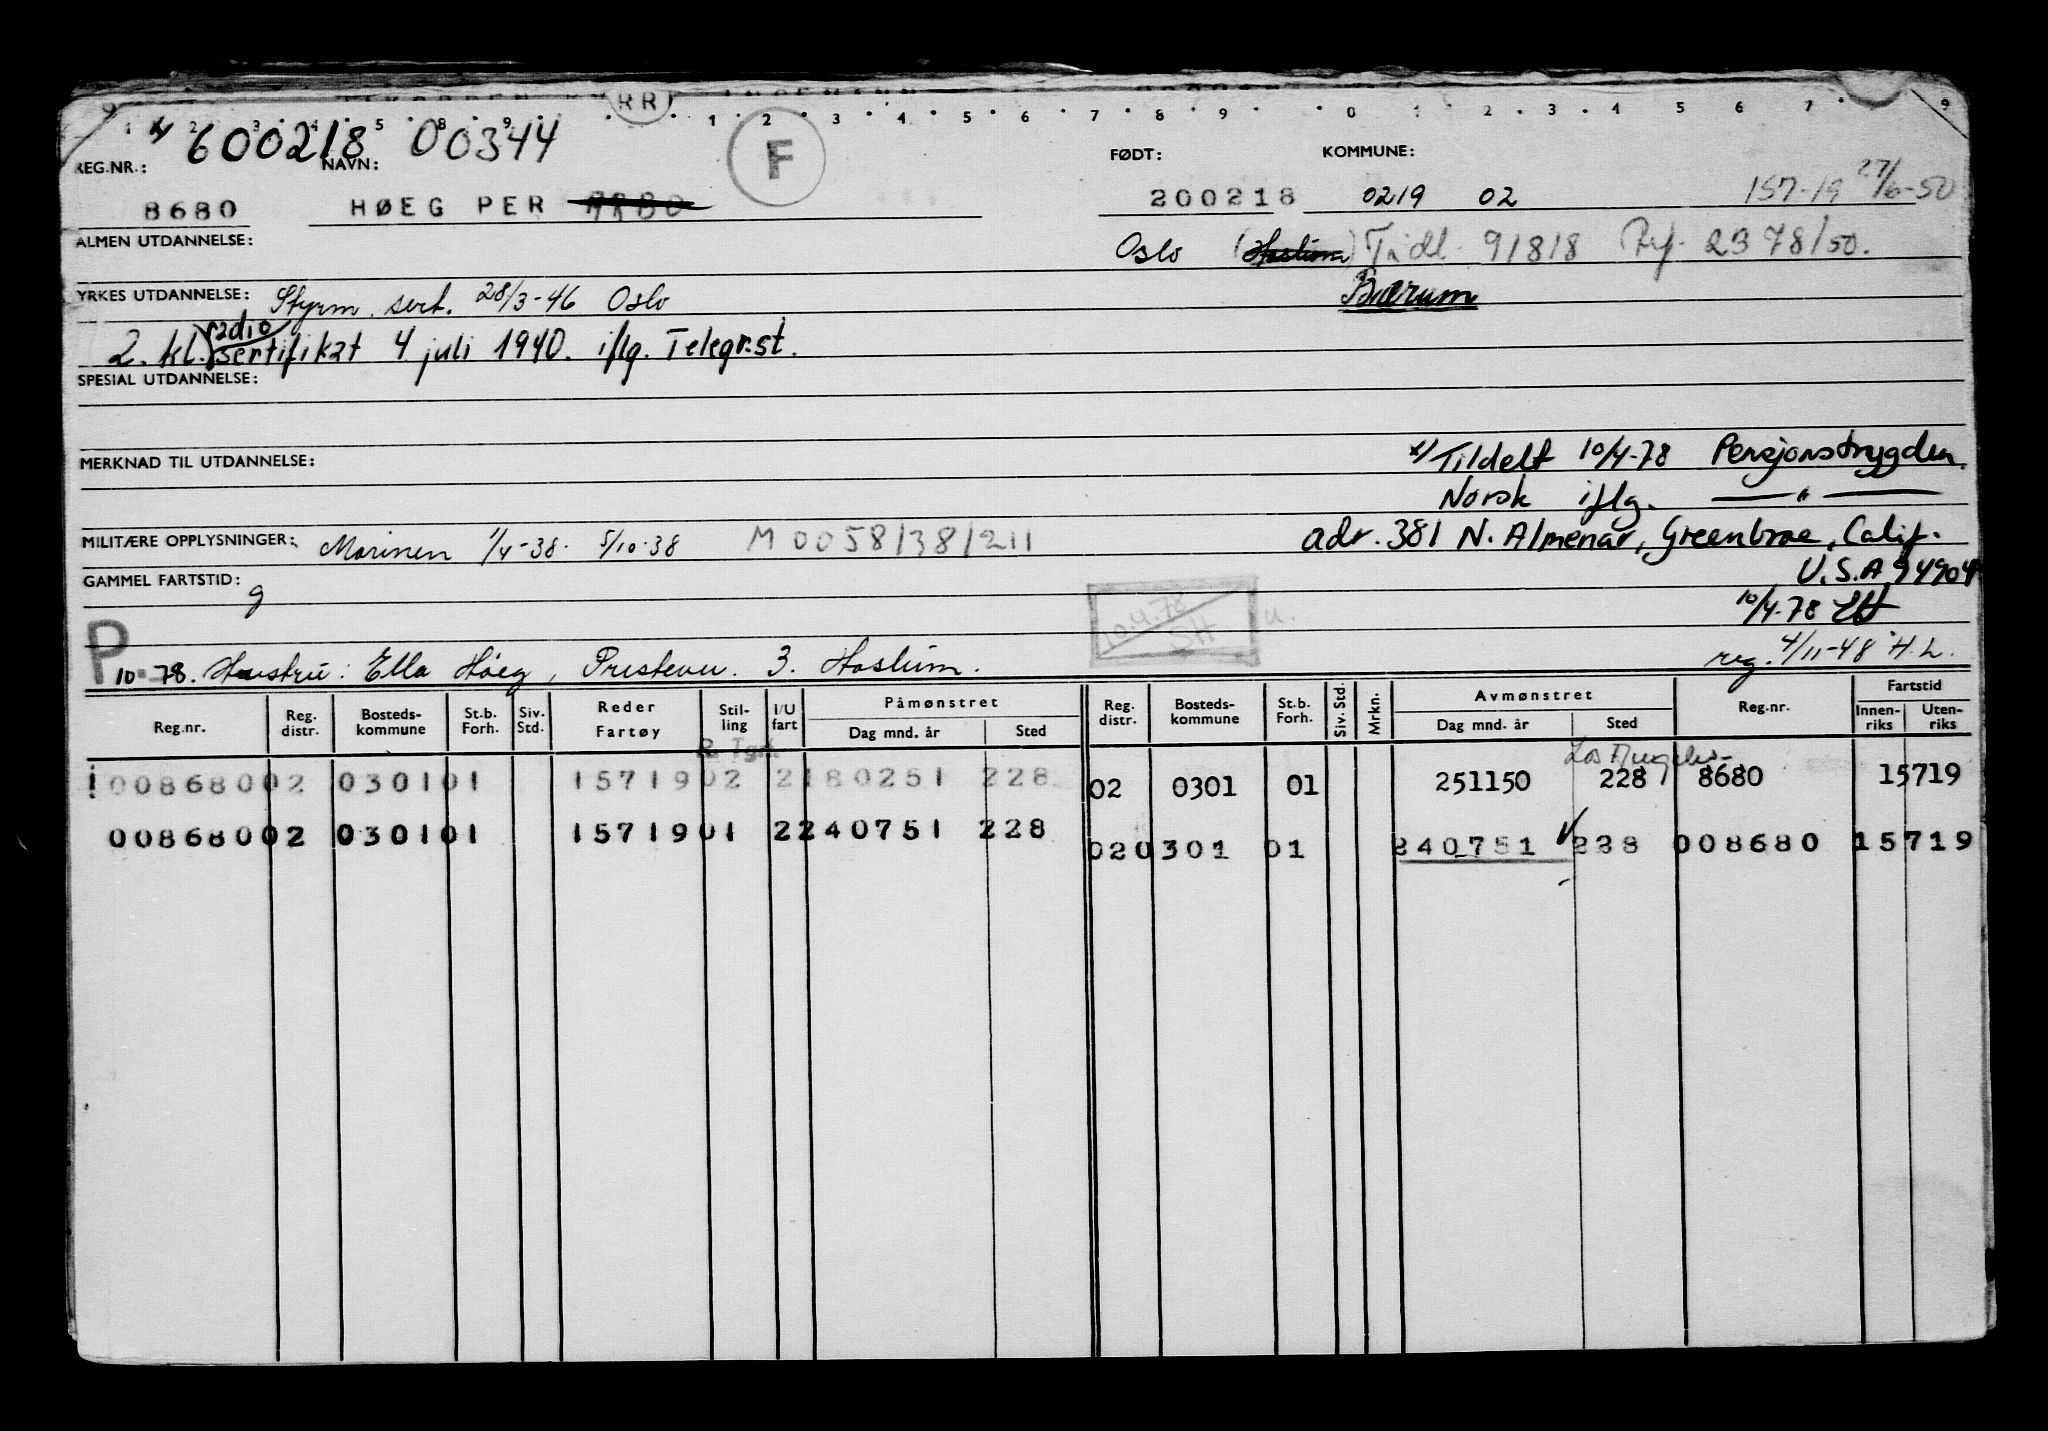 600218 00344
REG.NR.: NAVN: F FØDT: KOMMUNE:
8680 HØEG PER ARBO 200218 0219 02 157-19 27/6-50
ALMEN UTDANNELSE: Oslo (Haslum) Tidl. 91818 Ref. 2378/50.
YRKES UTDANNELSE: Styrm. sert. 28/3-46 Oslo Bærum
2. kl. radio sertifikat 4 juli 1940. iflg. Telegr.st.
SPESIAL UTDANNELSE:
MERKNAD TIL UTDANNELSE: x) Tildelt 10/4-78 Pensjonstrygden.
Norsk iflg. — " —
MILITÆRE OPPLYSNINGER: Marinen 1/4-38. 5/10-38 M 0058/38/211 adr. 381 N. Almenar, Greenbrae, Calif.
GAMMEL FARTSTID: g U.S.A 94904
10.4.78 SH 10/4-78 SH
P
10-78. Hustru: Ella Høeg, Presteveien. 3. Haslum. reg. 4/11-48 H.L.
Reg.nr. Reg. distr. Bosteds-kommune St.b. Forh. Siv. Std. Reder Fartøy Stil-ling I/U fart Påmønstret Dag mnd. år Sted Reg. distr. Bosteds-kommune St.b. Forh. Siv. Std. Mrkn. Avmønstret Dag mnd. år Sted Reg.nr. Fartstid Innen-riks Uten-riks
Los Angeles
008680 02 0301 01 15719 02 2 180251 228 02 0301 01 251150 228 8680 15719
008680 02 0301 01 15719 01 2 240751 228 02 0301 01 240751 228 008680 15719